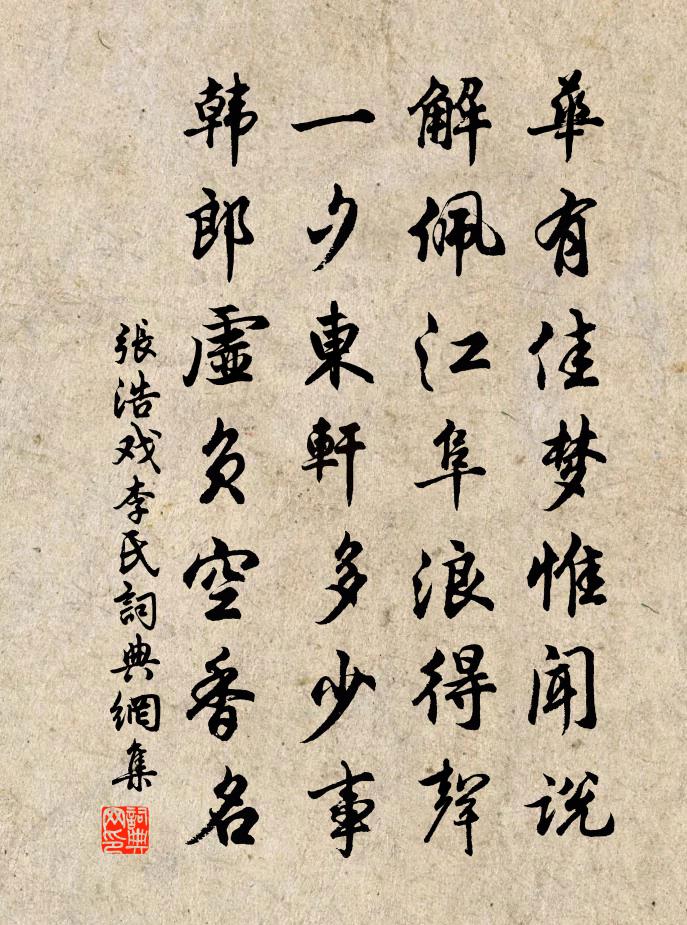 華有佳梦惟闻说
解佩江阜浪得聲
一夕東軒多少事
韩郎虚负空香名
張浩戏李氏詞典網集
詞典网印